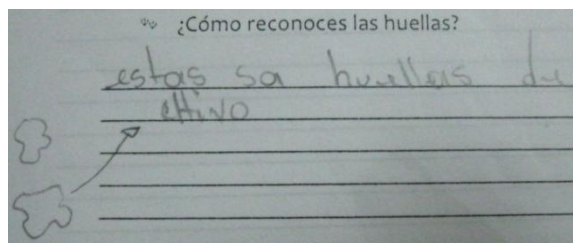 ¿Cómo reconoces las huellas?
estas sa huellas de
chivo